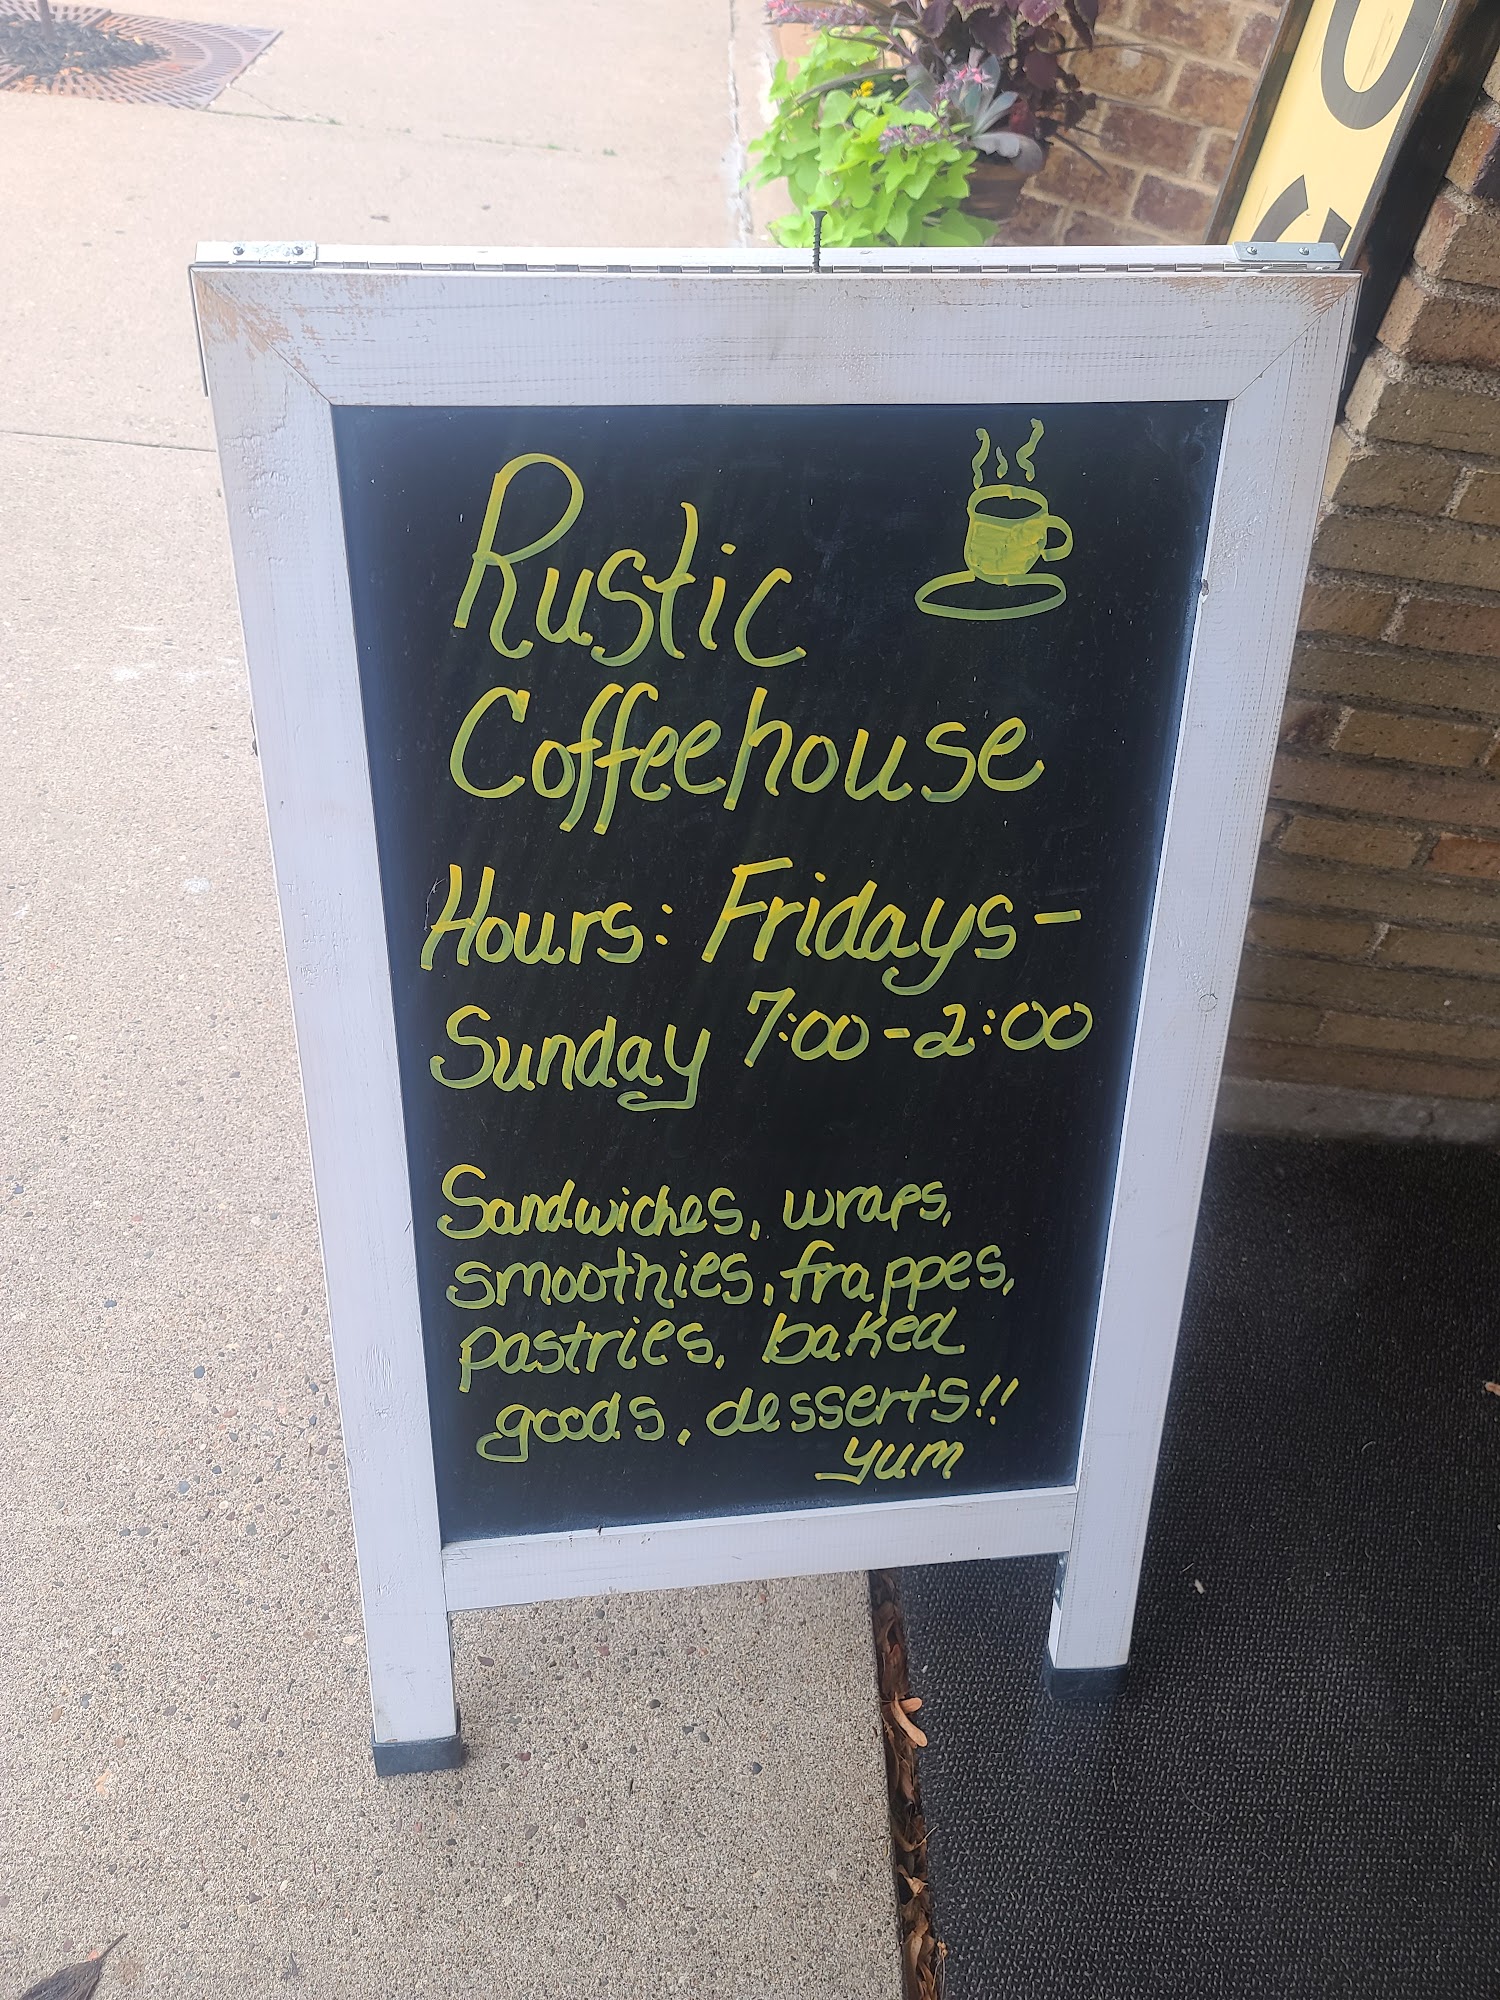 Rustic
Coffeehouse
Hours: Fridays -
Sunday 7:00-2:00
Sandwiches, wraps,
smoothies, frappes,
pastries, baked
goods, desserts!!
yum